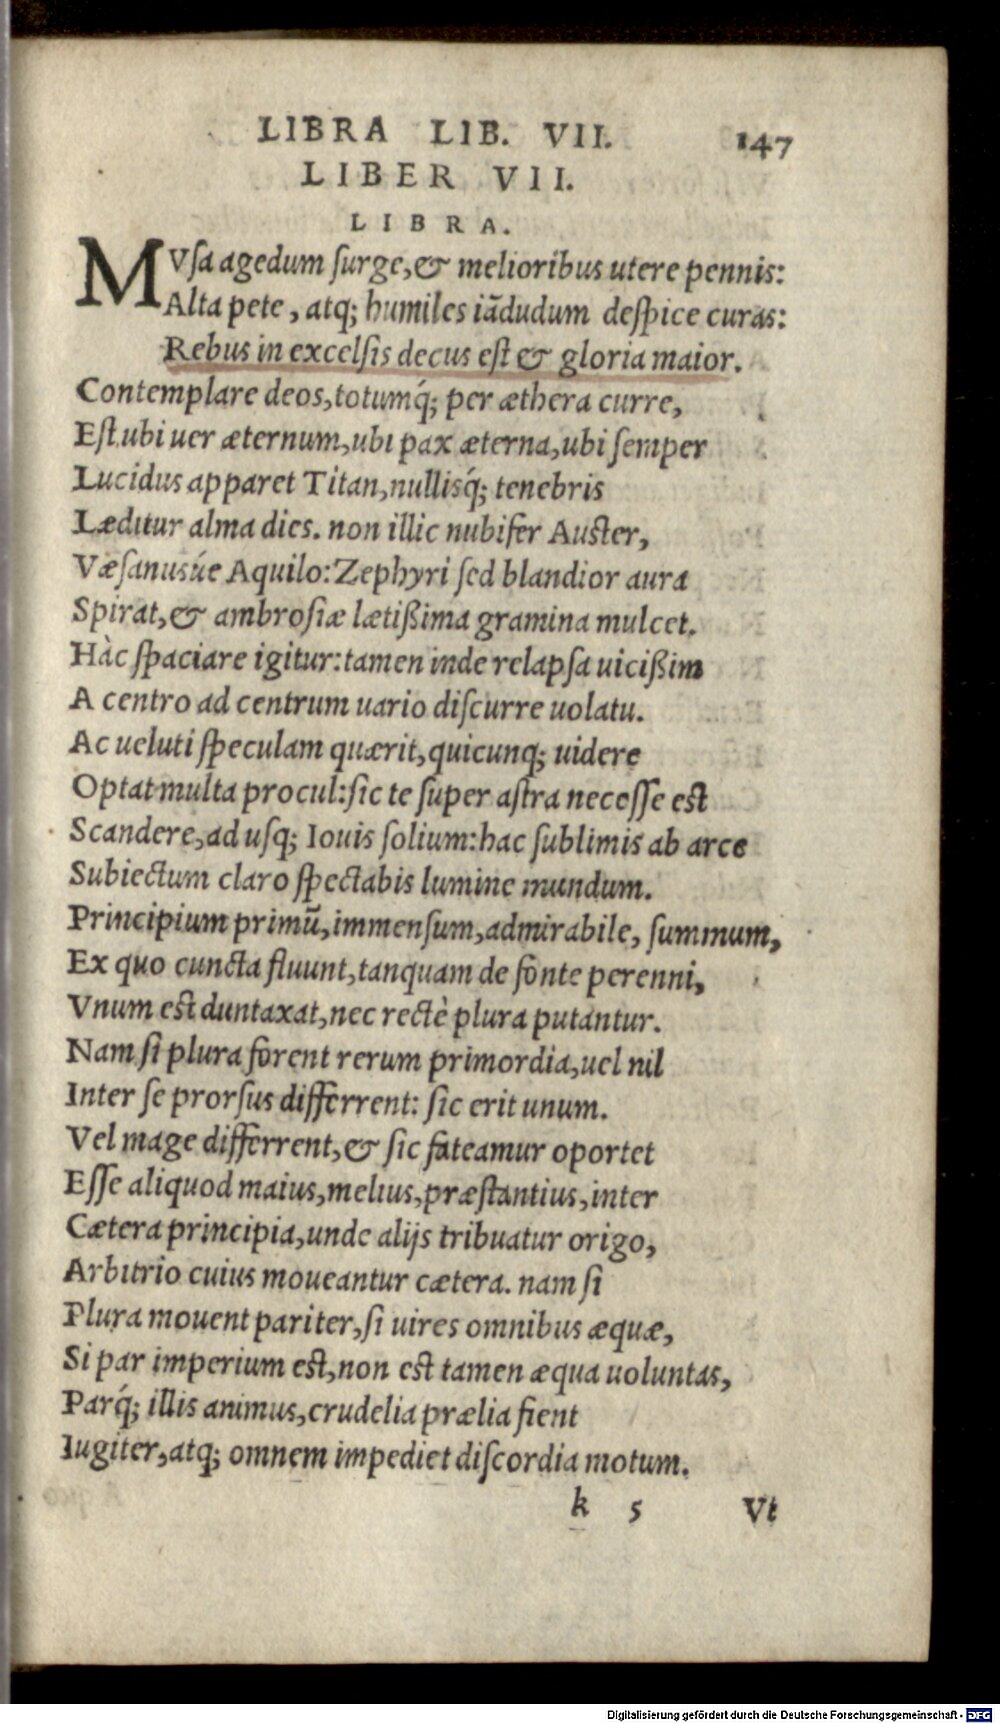 LIBRA LIB. VII. 147
LIBER VII.
LIBRA.
MVſa agedum ſurge, & melioribus utere pennis:
Alta pete, atq; humiles iādudum deſpice curas:
Rebus in excelſis decus eſt & gloria maior.
Contemplare deos, totumq́; per æthera curre,
Eſt ubi uer æternum, ubi pax æterna, ubi ſemper
Lucidus apparet Titan, nullisq́; tenebris
Læditur alma dies. non illic nubifer Auſter,
Væſanusúe Aquilo: Zephyri ſed blandior aura
Spirat, & ambroſiæ lætißima gramina mulcet.
Hàc ſpaciare igitur: tamen inde relapſa uicißim
A centro ad centrum uario diſcurre uolatu.
Ac ueluti ſpeculam quærit, quicunq; uidere
Optat multa procul: ſic te ſuper aſtra neceſſe eſt
Scandere, ad uſq; Iouis ſolium: hac ſublimis ab arce
Subiectum claro ſpectabis lumine mundum.
Principium primū, immenſum, admirabile, ſummum,
Ex quo cuncta fluunt, tanquam de fonte perenni,
Vnum eſt duntaxat, nec rectè plura putantur.
Nam ſi plura forent rerum primordia, uel nil
Inter ſe prorſus differrent: ſic erit unum.
Vel mage differrent, & ſic fateamur oportet
Eſſe aliquod maius, melius, præſtantius, inter
Cætera principia, unde alijs tribuatur origo,
Arbitrio cuius moueantur cætera. nam ſi
Plura mouent pariter, ſi uires omnibus æquæ,
Si par imperium eſt, non eſt tamen æqua uoluntas,
Parq́; illis animus, crudelia prælia fient
Iugiter, atq; omnem impediet diſcordia motum.
k 5 Vt
Digitalisierung gefördert durch die Deutsche Forschungsgemeinschaft - DFG